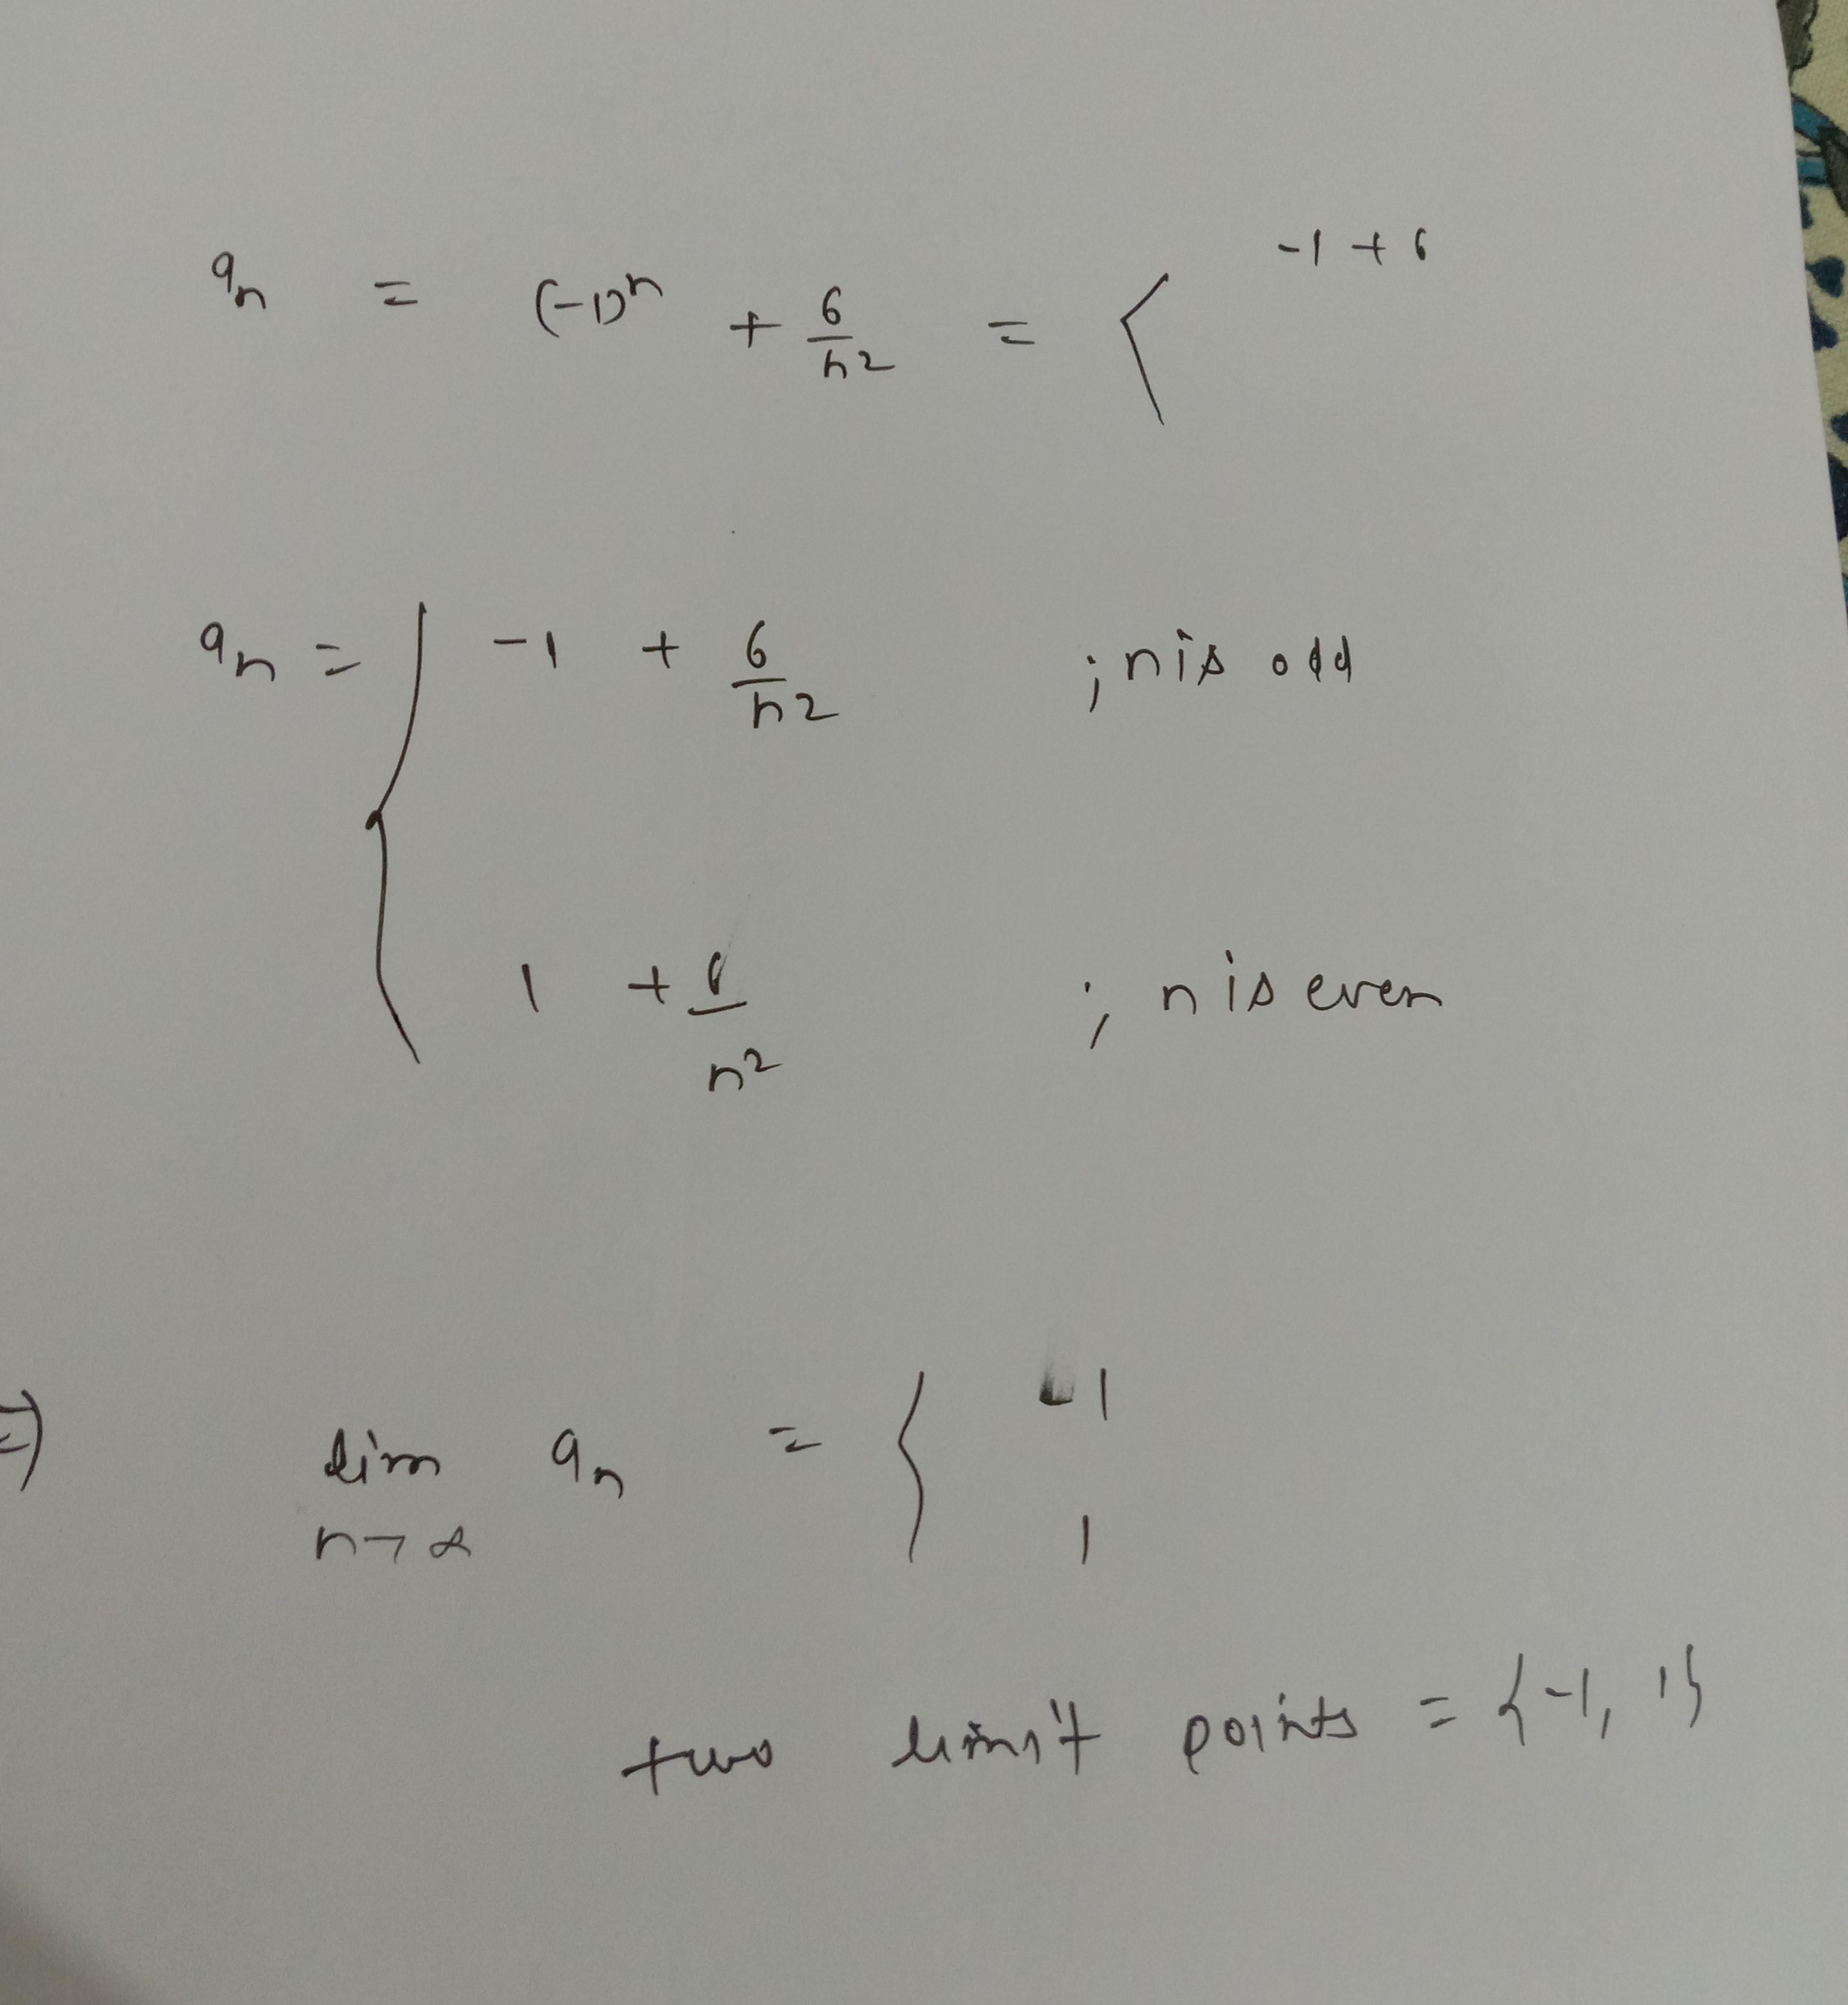 aₙ = (-1)ⁿ + 6/n² = { -1 + 6
aₙ = { -1 + 6/n² ; n is odd
1 + 6/n² ; n is even
⇒ lim n→∞ aₙ = { -1
1
two limit points = {-1, 1}